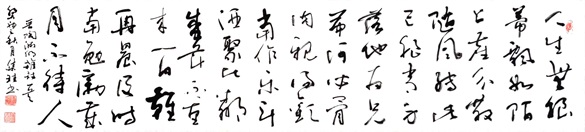 人生無根
蒂飄如陌
上塵分散
隨風轉此
已非常身
落地為兄
弟何必骨
肉親得歡
當作樂斗
酒聚比鄰
盛年不重
来一日難
再晨及時
當勉勵歲
月不待人
陶渊明雜詩